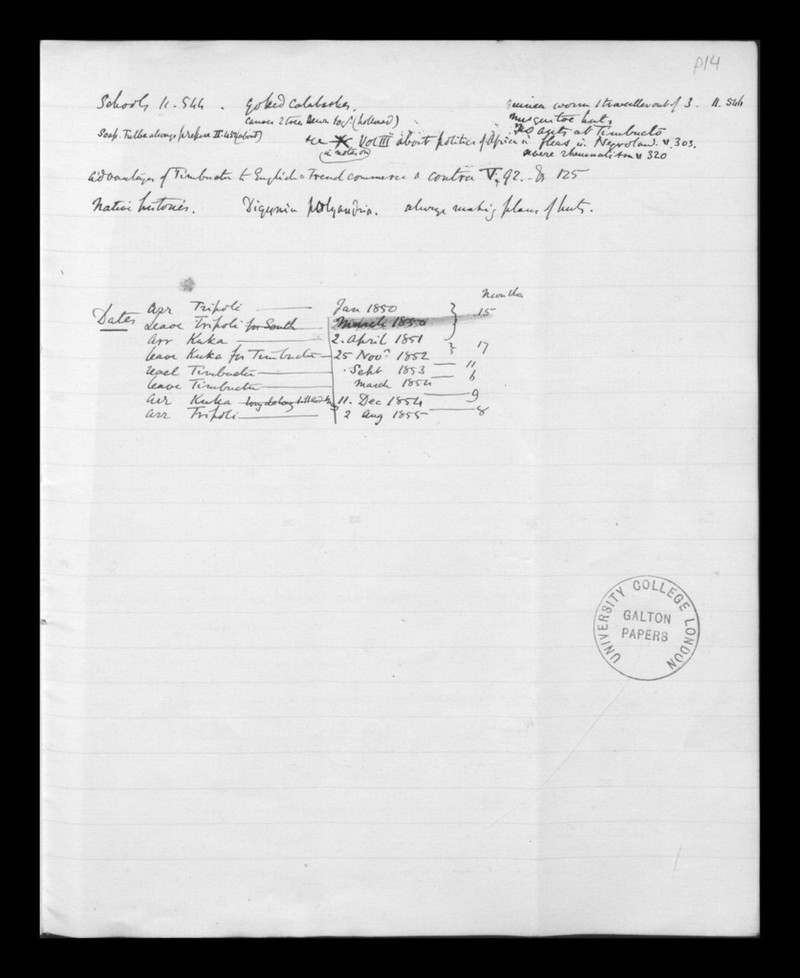 p14
Schools II. 544 . Yoked Calabashes. Guinea worm 1 traveller out of 3 - II. 544
Canoes 2 trees sewn tog.r (hollowed) Musquitoe huts
No ants at Timbucto
Soap. Fulbe always prepare IV. 432 (about) see Vol III about politics of Africa fleas in Negroland. V. 303.
(a note on) severe rheumatism V 320
Advantages of Timbuctu to English & French commerce & contra V. 92. - & 125
Native histories. Digynia polyandria. always making plans of huts.
Months
Dates arr Tripoli Jan 1850 } 15
Leave Tripoli for South March 1850
arr Kuka 2. April 1851
leave Kuka for Timbuctu 25 Novr 1852 } 17
reach Timbuctu Sept 1853 11
leave Timbuctu March 1854 6
arr Kuka 11. Dec 1854 9
arr Tripoli 2 Aug 1855 8
UNIVERSITY COLLEGE LONDON
GALTON
PAPERS